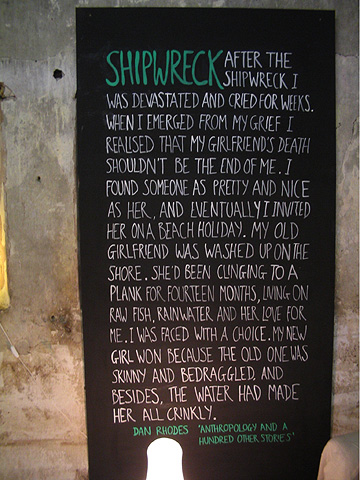 SHIPWRECK AFTER THE
SHIPWRECK I
WAS DEVASTATED AND CRIED FOR WEEKS.
WHEN I EMERGED FROM MY GRIEF I
REALISED THAT MY GIRLFRIEND'S DEATH
SHOULDN'T BE THE END OF ME. I
FOUND SOMEONE AS PRETTY AND NICE
AS HER, AND EVENTUALLY I INVITED
HER ON A BEACH HOLIDAY. MY OLD
GIRLFRIEND WAS WASHED UP ON THE
SHORE. SHE'D BEEN CLINGING TO A
PLANK FOR FOURTEEN MONTHS, LIVING ON
RAW FISH, RAINWATER AND HER LOVE FOR
ME. I WAS FACED WITH A CHOICE. MY NEW
GIRL WON BECAUSE THE OLD ONE WAS
SKINNY AND BEDRAGGLED, AND
BESIDES, THE WATER HAD MADE
HER ALL CRINKLY.
DAN RHODES 'ANTHROPOLOGY AND A
HUNDRED OTHER STORIES'